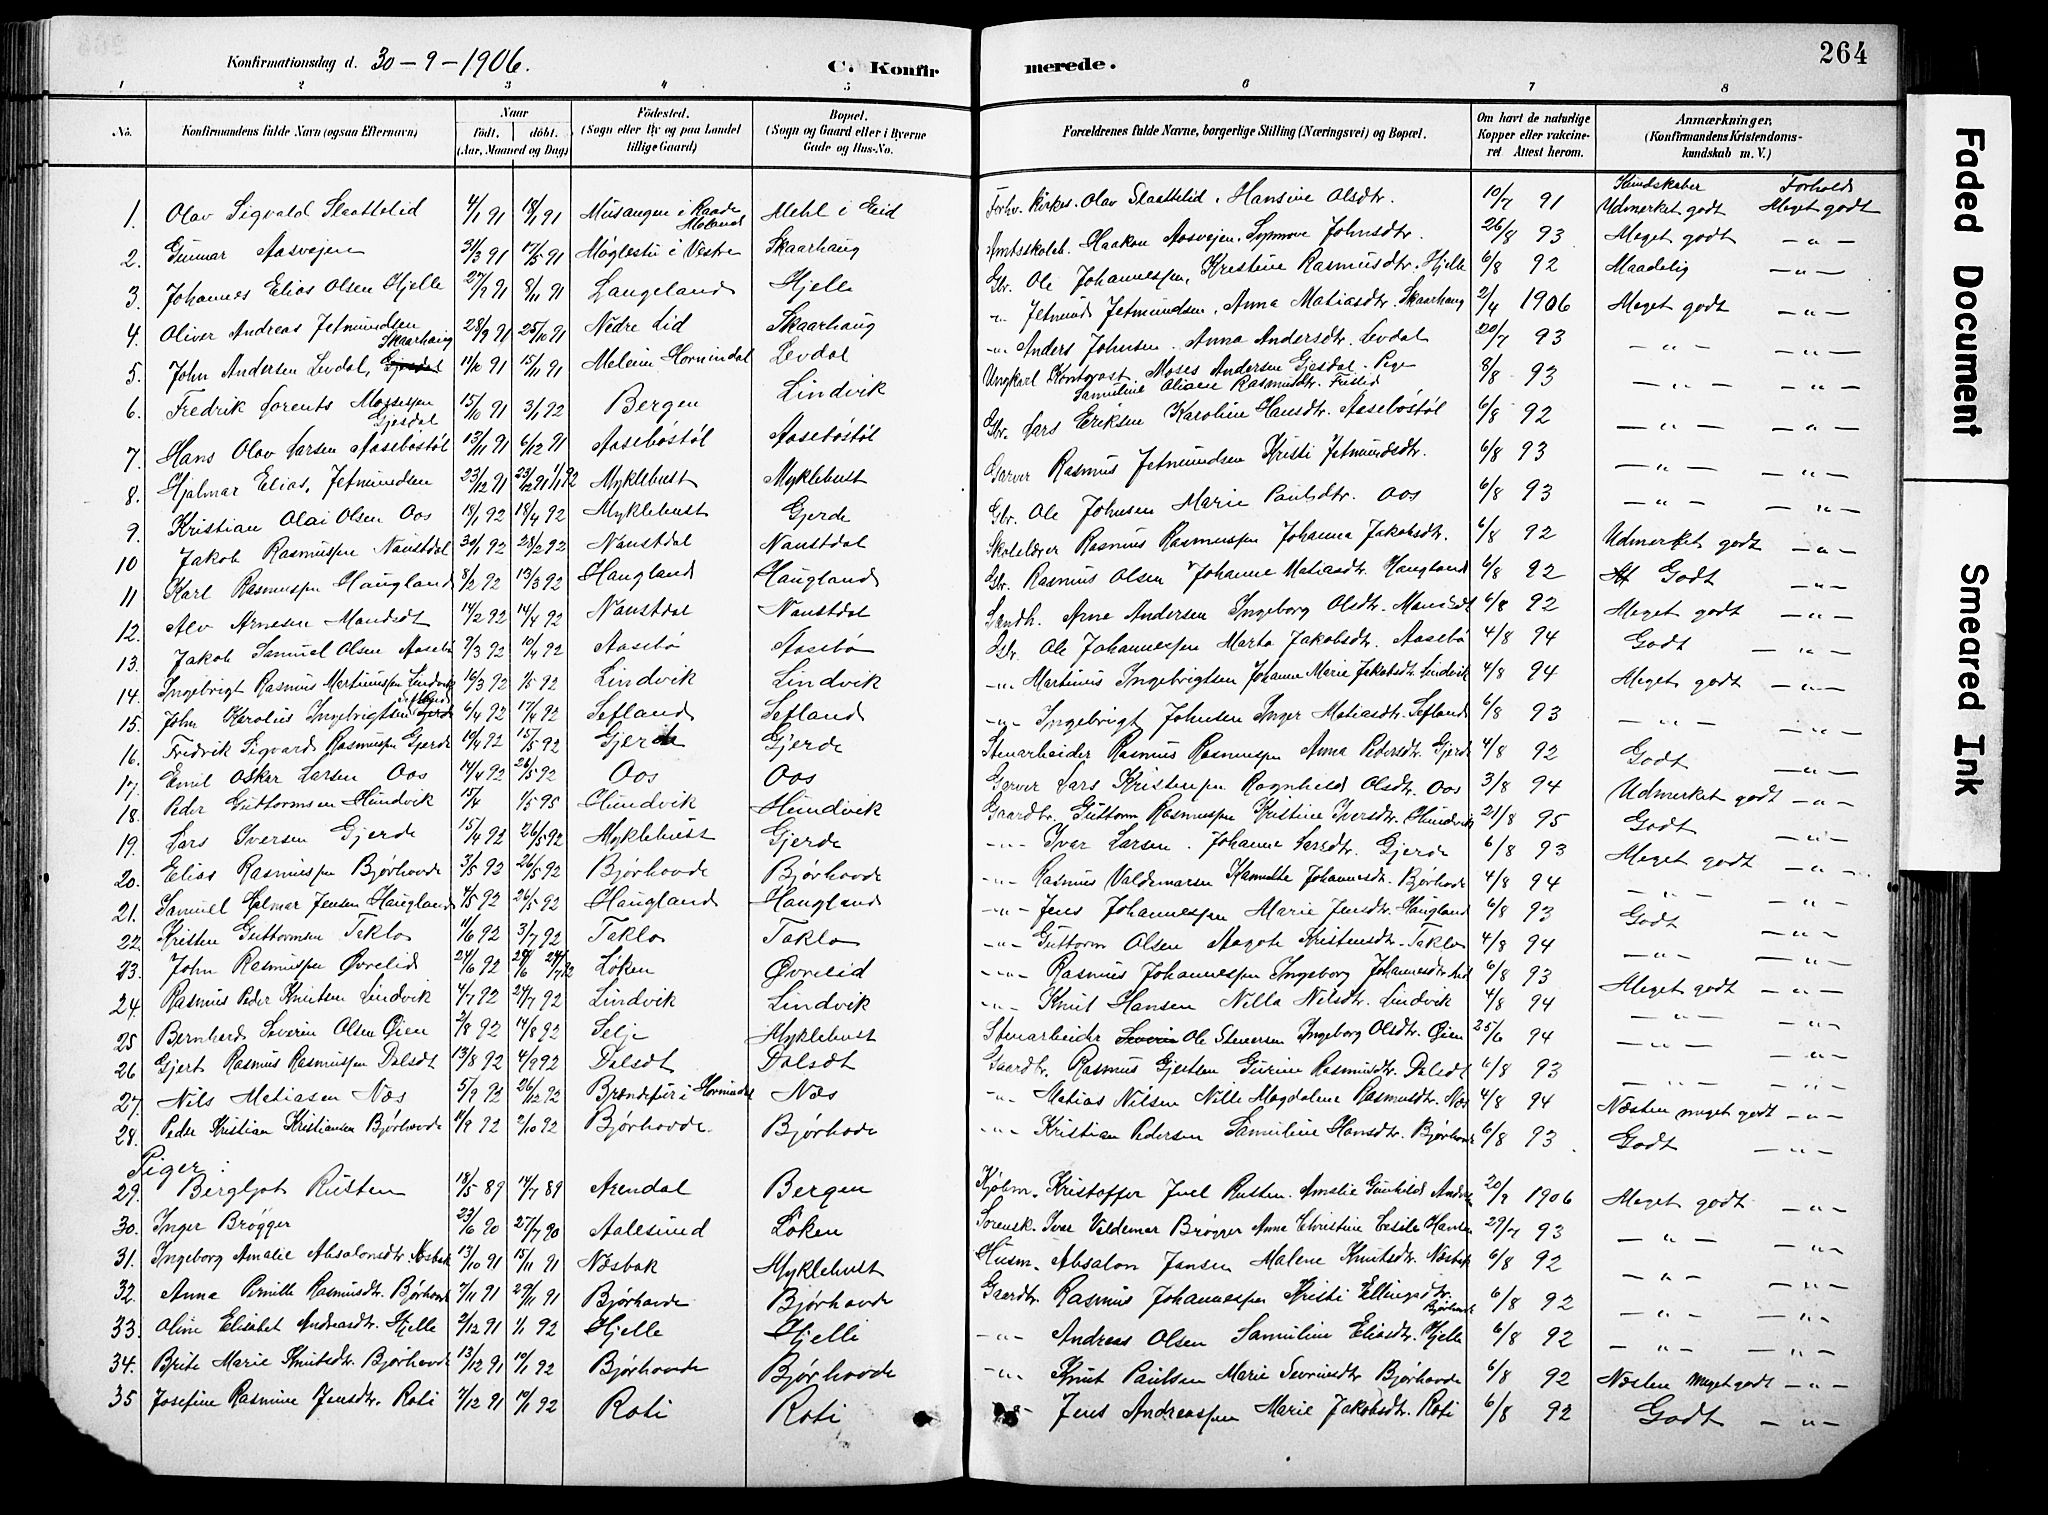 264
Konfirmationsdag d. 30-9-1906.
C. Konfirmerede.
1 2 3 4 5 6 7 8
No. Konfirmandens fulde Navn (ogsaa Efternavn) Naar født, døbt. (Aar, Maaned og Dag) Fødested. (Sogn eller By og paa Landet tillige Gaard) Bopæl. (Sogn og Gaard eller i Byerne Gade og Hus-No. Forældrenes fulde Navne, borgerlige Stilling (Næringsvei) og Bopæl. Om havt de naturlige Kopper eller vakcineret Attest herom. Anmærkninger, (Konfirmandens Kristendomskundskab m. V.)
Kundskaber Forhold
1. Olav Sigvald Slaattelid 4/1 91 18/1 91 Mehl i Eid Olav Slaattelid, Hansine Olsdtr. 10/7 91 Udmerket godt Meget godt
2. Gunnar Aasvejen 31/3 91 17/5 91 Møglestu i Vestre Skaarhaug Amtsskoleb. Haakon Aasvejen. Synnøve Johnsdtr. 26/8 93 Meget godt -"-
3. Johannes Elias Olsen Hjelle 27/9 91 8/11 91 Langeland Hjelle Gbr. Ole Johannessen, Kristine Rasmusdtr. Hjelle 6/8 92 Maadelig -"-
4. Oliver Andreas Jetmundsen Skaarhaug 28/9 91 25/10 91 Nedre Lid Skaarhaug -"- Jetmund Jetmundsen, Anna Matiasdtr. Skaarhaug 2/4 1906 Meget godt -"-
5. John Andersen Levdal, 11/10 91 15/11 91 Meleim Hornindal Levdal -"- Anders Johnsen. Anna Andersdtr. Levdal 20/7 93 -"- -"-
6. Fredrik Lorents Mosessen Gjesdal 15/10 91 3/1 92 Bergen Lindvik Ungkarl Moses Andersen Gjesdal. Pige Samuline Oliane Rasmusdtr. 8/8 93 -"- -"-
7. Hans Olav Larsen Aasebøstøl 13/11 91 6/12 91 Aasebøstøl Aasebøstøl Gbr. Lars Eriksen Karoline Hansdtr. Aasebøstøl 6/8 92 -"- -"-
8. Hjalmar Elias Jetmundsen 23/12 91 23/12 91 1/1 92 Myklebust Myklebust Garver Rasmus Jetmundsen Kristi Jetmundsdtr. 6/8 93 -"- -"-
9. Kristian Olai Olsen Oos 18/1 92 18/4 92 Myklebust Gjerde Gbr. Ole Johnsen Marie Paulsdtr. Oos 6/8 93 -"- -"-
10 Jakob Rasmussen Naustdal 30/1 92 28/2 92 Naustdal Naustdal Skolelærer Rasmus Rasmussen Johanna Jakobsdtr. 6/8 92 Udmerket godt -"-
11 Karl Rasmussen Haugland 8/2 92 13/3 92 Haugland Haugland Gbr. Rasmus Olsen Johanne Matiasdtr. Haugland 6/8 92 Godt -"-
12. Alv Arnesen Mandsdt 14/2 92 14/4 92 Naustdal Naustdal Landh. Arne Andersen Ingeborg Olsdtr. Mandsdt 6/8 92 Meget godt -"-
13. Jakob Samuel Olsen Aasebø 7/3 92 10/4 92 Aasebø Aasebø Gbr. Ole Johannessen Marta Jakobsdtr. Aasebø 4/8 94 Godt -"-
14. Ingebrigt Rasmus Martinussen Lindvik 16/3 92 1/5 92 Lindvik Lindvik -"- Martinus Ingebrigtsen Johanne Marie Jakobsdtr. Lindvik 4/8 94 Meget godt -"-
15. John Karolius Ingebrigtsen Sefland 6/4 92 17/4 92 Sefland Sefland -"- Ingebrigt Johnsen Inger Matiasdtr. Sefland 6/8 93 -"- -"-
16. Fredrik Sigvard Rasmussen Gjerde 10/4 92 15/5 92 Gjerde Gjerde Stenarbeider Rasmus Rasmussen Anna Pedersdtr. Gjerde 4/8 92 Godt -"-
17. Emil Oskar Larsen Oos 14/4 92 26/5 92 Oos Oos Garver Lars Kristensen Ragnhild Olsdtr. Oos 3/8 94 Udmerket godt -"-
18. Peder Guttormsen Hundvik 15/4 1/5 95 Hundvik Hundvik Gaardbr. Guttorm Rasmussen Kristine Iversdtr. Hundvik 21/8 95 Godt -"-
19. Lars Iversen Gjerde 15/4 92 26/5 92 Myklebust Gjerde -"- Ivar Larsen. Johanne Larsdtr. Gjerde 6/8 93 Meget godt -"-
20. Elias Rasmussen Bjørhovde 3/5 92 26/5 92 Bjørhovde Bjørhovde -"- Rasmus Valdemarsen Johannesdtr. Bjørhovde 4/8 94 -"- -"-
21. Samuel Hjalmar Jensen Haugland 4/5 92 26/5 92 Haugland Haugland -"- Jens Johannessen Marie Jensdtr. Haugland 6/8 93 Godt -"-
22. Kristen Guttormsen Taklo 11/6 92 3/7 92 Taklo Taklo -"- Guttorm Olsen Magote Kristensdtr. Taklo 4/8 94 -"-
23. John Rasmussen Øvrelid 24/6 92 Løken Øvrelid -"- Rasmus Johannessen Ingeborg Johannesdtr. 6/8 93 Meget godt -"-
24. Rasmus Peder Knutsen Lindvik 4/7 92 24/7 92 Lindvik Lindvik -"- Knut Hansen Nilla Nilsdtr. Lindvik 4/8 94 -"- -"-
25 Bernhard Severin Olsen Øien 2/8 92 14/8 92 Selje Myklebust Stenarbeider Ole Steversen Ingeborg Olsdtr. Øien 25/6 94 -"- -"-
26 Gjert Rasmus Rasmussen Dalsdt 13/8 92 4/9 92 Dalsdt Dalsdt Gaardbr. Rasmus Gjertsen Gurine Rasmusdtr. Dalsdt 6/8 93 -"- -"-
27. Nils Matiasen Næs 5/9 92 26/12 92 Hornindal Næs -"- Matias Nilsen Nille Magdalene Rasmusdtr. Næs 4/8 94 Næsten meget godt -"-
28. Peder Kristian Kristiansen Bjørhovde 11/9 92 2/10 92 Bjørhovde. Bjørhovde -"- Kristian Pedersen Samuline Hansdtr. Bjørhovde 6/8 93 Godt -"-
Piger:
29. Bergljot Rusten 18/5 89 14/7 89 Arendal Bergen Kjøbm. Kristoffer Juel Rusten. Amalie Gunhild 20/9 1906 Meget godt -"-
30. Inger Brøgger 23/6 90 27/7 90 Aalesund Løken Sorensk. Ivar Valdemar Brøgger Anna Christine Cecilie Hansen 29/7 93 -"- -"-
31. Ingeborg Amalie Absalonsdtr. Næsbak 13/10 91 15/11 91 Næsbak Myklebust Husm. Absalon Jansen Malene Knutsdtr. Næsbak 6/8 92 -"- -"-
32. Anna Pernille Rasmusdtr. Bjørhovde 7/11 91 29/11 91 Bjørhovde Bjørhovde Gaardbr. Rasmus Johannessen Kristi Ellingsdtr. Bjørhovde 6/8 92 -"- -"-
33. Oline Elisabet Andreasdtr. Hjelle 2/12 91 1/1 92 Hjelle Hjelle -"- Andreas Olsen Samuline Eliasdtr. Hjelle 6/8 92 -"- -"-
34. Brite Marie Knutsdtr. Bjørhovde 13/12 91 10/1 92 Bjørhovde Bjørhovde -"- Knut Paulsen Marie Sevrinsdtr Bjørhovde 6/8 92 Næsten meget godt -"-
35 Josefine Rasmine Jensdtr. Roti 7/12 91 10/1 92 Roti Roti -"- Jens Andreassen Marie Jakobsdtr. Roti 6/8 92 Godt -"-
Faded Document
Smeared Ink